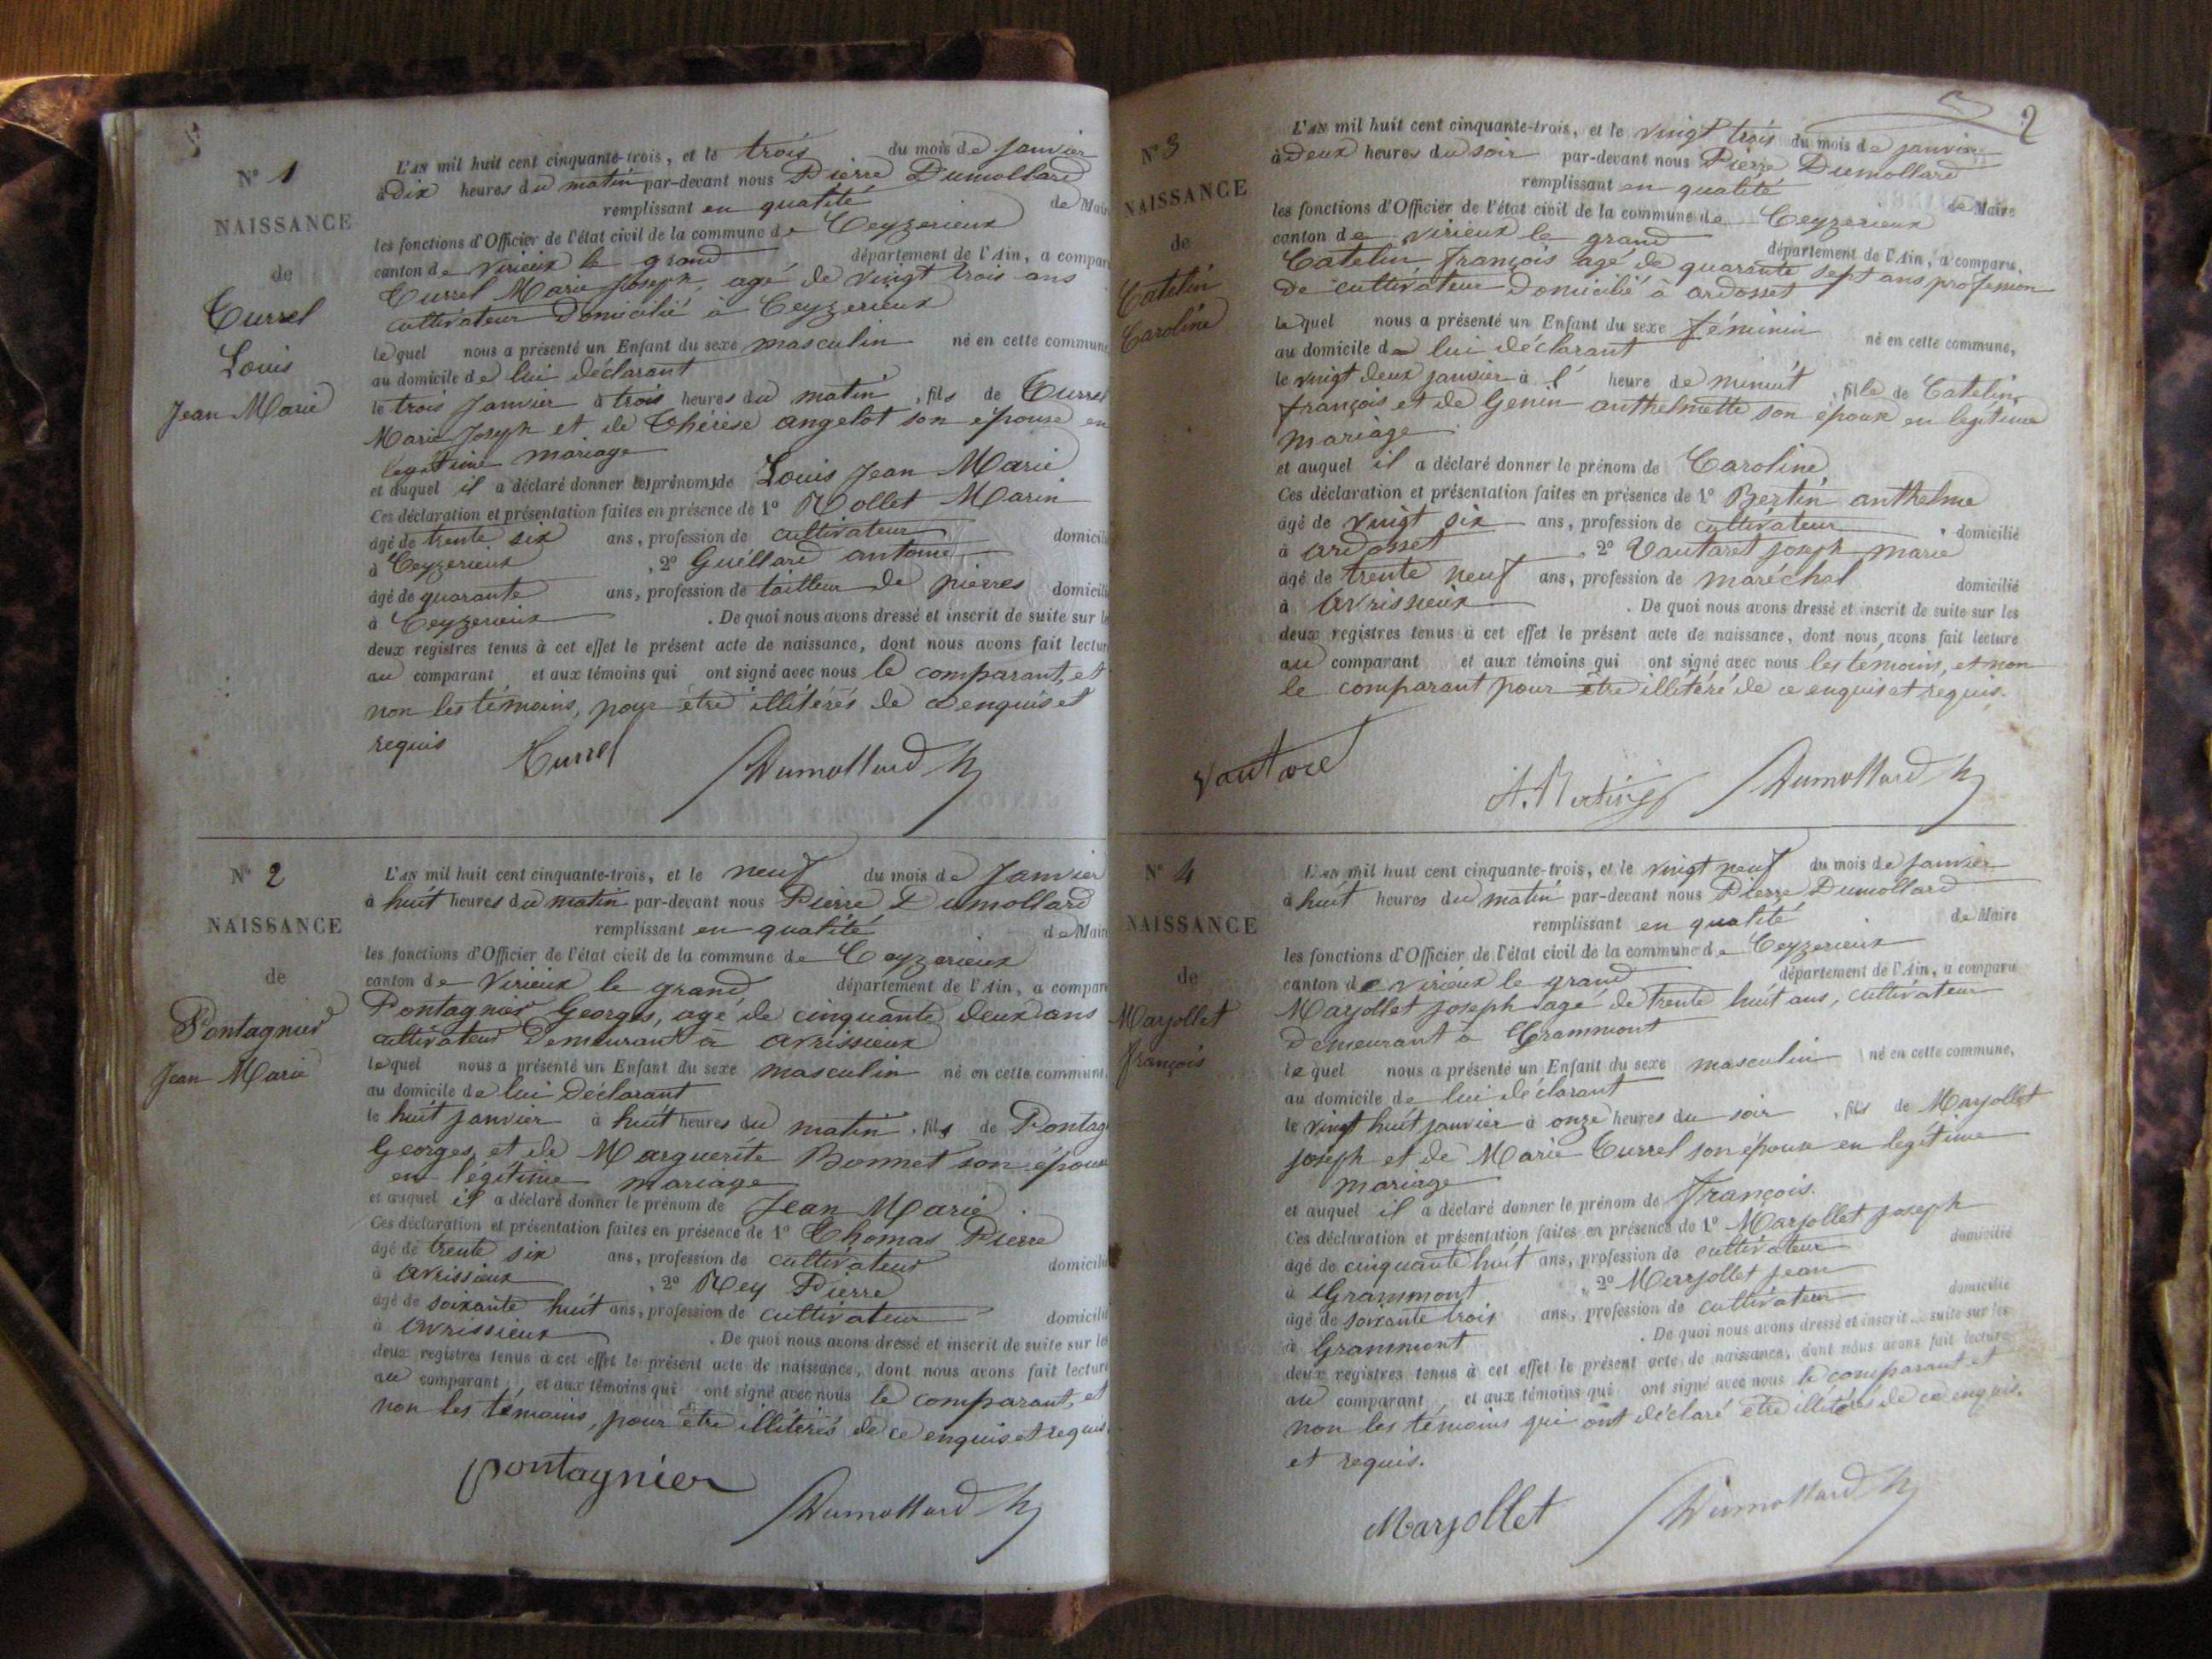 N° 1
NAISSANCE
de
Currel
Louis
Jean Marie
L'AN mil huit cent cinquante-trois, et le trois du mois de Janvier
à Dix heures du matin par-devant nous Pierre Dumollard
remplissant en qualité de Mair
les fonctions d'Officier de l'état civil de la commune de Ceyzerieux
canton de Virieux le grand département de l'Ain, a compar
Currel Marie Joseph, agé de vingt trois ans
cultivateur Domicilié à Ceyzerieux
lequel nous a présenté un Enfant du sexe masculin né en cette commune,
au domicile de lui déclarant
le trois Janvier à trois heures du matin, fils de Currel
Marie Joseph et de Thérèse angelot son épouse en
legitime mariage
et auquel il a déclaré donner les prénoms de Louis Jean Marie
Ces déclaration et présentation faites en présence de 1° Mollet Marin
âgé de trente six ans, profession de cultivateur domicili
à Ceyzerieux, 2° Guéllard antoine
âgé de quarante ans, profession de tailleur de pierres domicili
à Ceyzerieux. De quoi nous avons dressé et inscrit de suite sur le
deux registres tenus à cet effet le présent acte de naissance, dont nous avons fait lectur
au comparant et aux témoins qui ont signé avec nous le comparant, et
non les témoins, pour être illitérés de ce enquis et
requis
Currel Dumollard
N° 2
NAISSANCE
de
Pontagnier
Jean Marie
L'AN mil huit cent cinquante-trois, et le neuf du mois de Janvier
à huit heures du matin par-devant nous Pierre Dumollard
remplissant en qualité de Mair
les fonctions d'Officier de l'état civil de la commune de Ceyzerieux
canton de Virieux le grand département de l'Ain, a compar
Pontagnier Georges, agé de cinquante deux ans
cultivateur Demeurant à avrissieux
lequel nous a présenté un Enfant du sexe masculin né en cette commune,
au domicile de lui Déclarant
le huit janvier à huit heures du matin, fils de Pontag
Georges, et de Marguerite Bonnet son épouse
en légitime mariage
et auquel il a déclaré donner le prénom de Jean Marie
Ces déclaration et présentation faites en présence de 1° Thomas Pierre
âgé de trente six ans, profession de cultivateur domicilié
à avrissieux, 2° Rey Pierre
âgé de soixante huit ans, profession de cultivateur domicilié
à avrissieux. De quoi nous avons dressé et inscrit de suite sur les
deux registres tenus à cet effet le présent acte de naissance, dont nous avons fait lecture
au comparant et aux témoins qui ont signé avec nous le comparant, et
non les témoins, pour être illitérés de ce enquis et requis.
pontagnier Dumollard
2
N° 3
NAISSANCE
de
Catelin
Caroline
L'AN mil huit cent cinquante-trois, et le vingt trois du mois de janvier
à Deux heures du soir par-devant nous Pierre Dumollard
remplissant en qualité de Maire
les fonctions d'Officier de l'état civil de la commune de Ceyzerieux
canton de virieux le grand département de l'Ain, a comparu,
Catelin françois agé de quarante sept ans profession
de cultivateur domicilié à ardosset
lequel nous a présenté un Enfant du sexe féminin né en cette commune,
au domicile de lui déclarant
le vingt deux janvier à l' heure de minuit, fille de Catelin,
françois et de Genin anthelmette son épouse en legitime
mariage
et auquel il a déclaré donner le prénom de Caroline
Ces déclaration et présentation faites en présence de 1° Bertin anthelme
âgé de vingt six ans, profession de cultivateur domicilié
à ardosset, 2° Vautaret joseph marie
âgé de trente neuf ans, profession de maréchal domicilié
à avrissieux. De quoi nous avons dressé et inscrit de suite sur les
deux registres tenus à cet effet le présent acte de naissance, dont nous avons fait lecture
au comparant et aux témoins qui ont signé avec nous les témoins, et non
le comparant pour être illitéré de ce enquis et requis.
A. Bertin Dumollard
N° 4
NAISSANCE
de
Marjollet
françois
L'AN mil huit cent cinquante-trois, et le vingt neuf du mois de janvier
à huit heures du matin par-devant nous Pierre Dumollard
remplissant en qualité de Maire
les fonctions d'Officier de l'état civil de la commune de Ceyzerieux
canton de virieux le grand département de l'Ain, a comparu
Marjollet joseph agé de trente huit ans, cultivateur
demeurant à Grammont
lequel nous a présenté un Enfant du sexe masculin né en cette commune,
au domicile de lui déclarant
le vingt huit janvier à onze heures du soir, fils de Marjollet
joseph et de Marie Currel son épouse en legitime
mariage
et auquel il a déclaré donner le prénom de François.
Ces déclaration et présentation faites en présence de 1° Marjollet joseph
âgé de cinquante huit ans, profession de cultivateur domicilié
à Grammont, 2° Marjollet jean
âgé de soixante trois ans, profession de cultivateur domicilié
à Grammont. De quoi nous avons dressé et inscrit de suite sur les
deux registres tenus à cet effet le présent acte de naissance, dont nous avons fait lecture
au comparant et aux témoins qui ont signé avec nous le comparant et
non les témoins qui ont déclaré être illitérés de ce enquis.
et requis.
Marjollet Dumollard